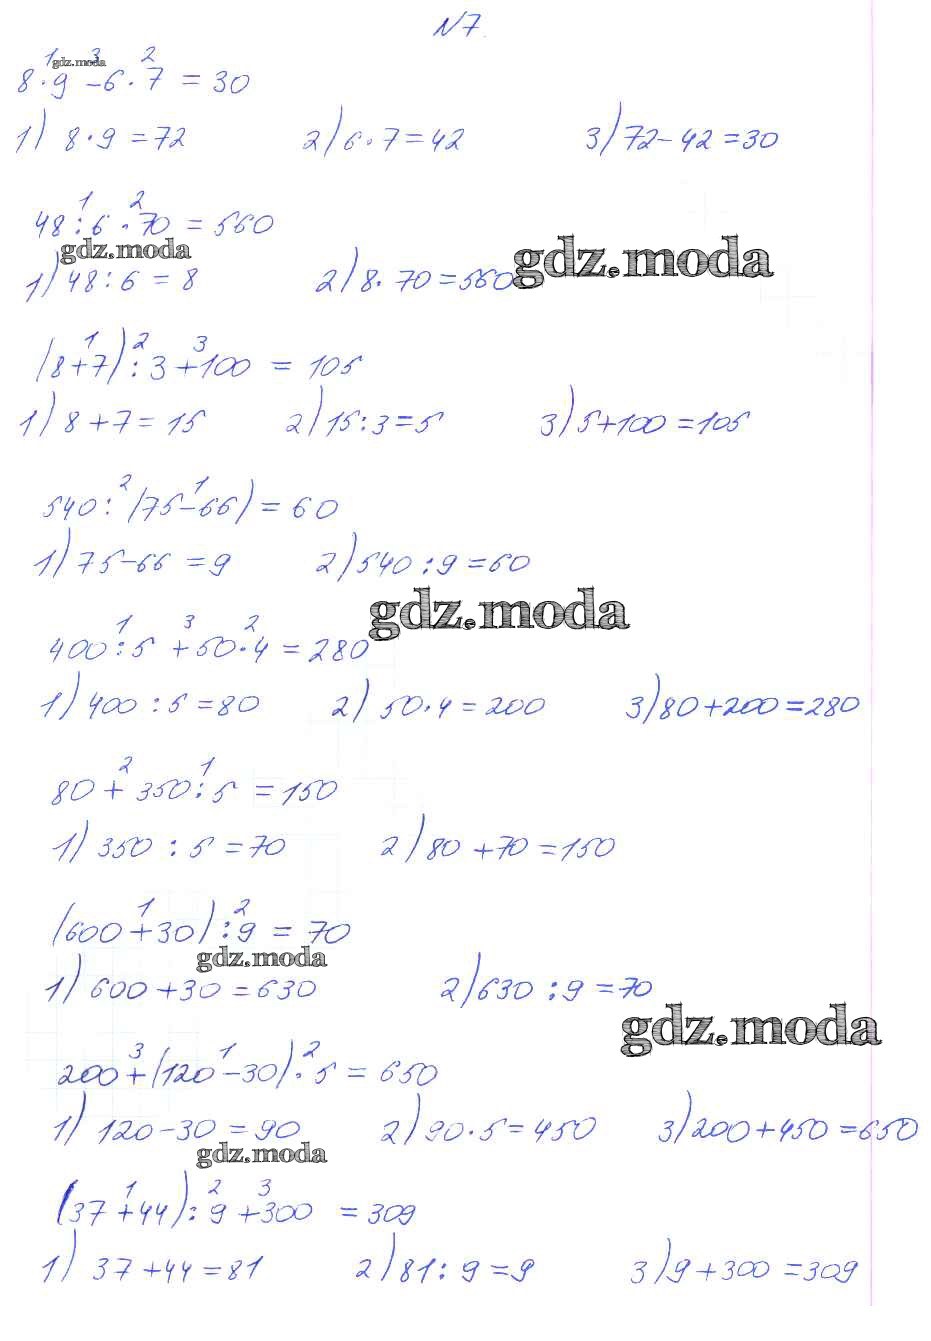 N7.
1 3 2
gdz.moda
8·9-6·7=30
1) 8·9=72 2) 6·7=42 3) 72-42=30
1 2
48:6·70=560
gdz.moda
gdz.moda
1) 48:6=8 2) 8·70=560
1 2 3
(8+7):3+100=105
1) 8+7=15 2) 15:3=5 3) 5+100=105
2 1
540:(75-66)=60
1) 75-66=9 2) 540:9=60
gdz.moda
1 3 2
400:5+50·4=280
1) 400:5=80 2) 50·4=200 3) 80+200=280
2 1
80+350:5=150
1) 350:5=70 2) 80+70=150
1 2
(600+30):9=70
gdz.moda
1) 600+30=630 2) 630:9=70
gdz.moda
3 1 2
200+(120-30)·5=650
1) 120-30=90 2) 90·5=450 3) 200+450=650
gdz.moda
1 2 3
(37+44):9+300=309
1) 37+44=81 2) 81:9=9 3) 9+300=309